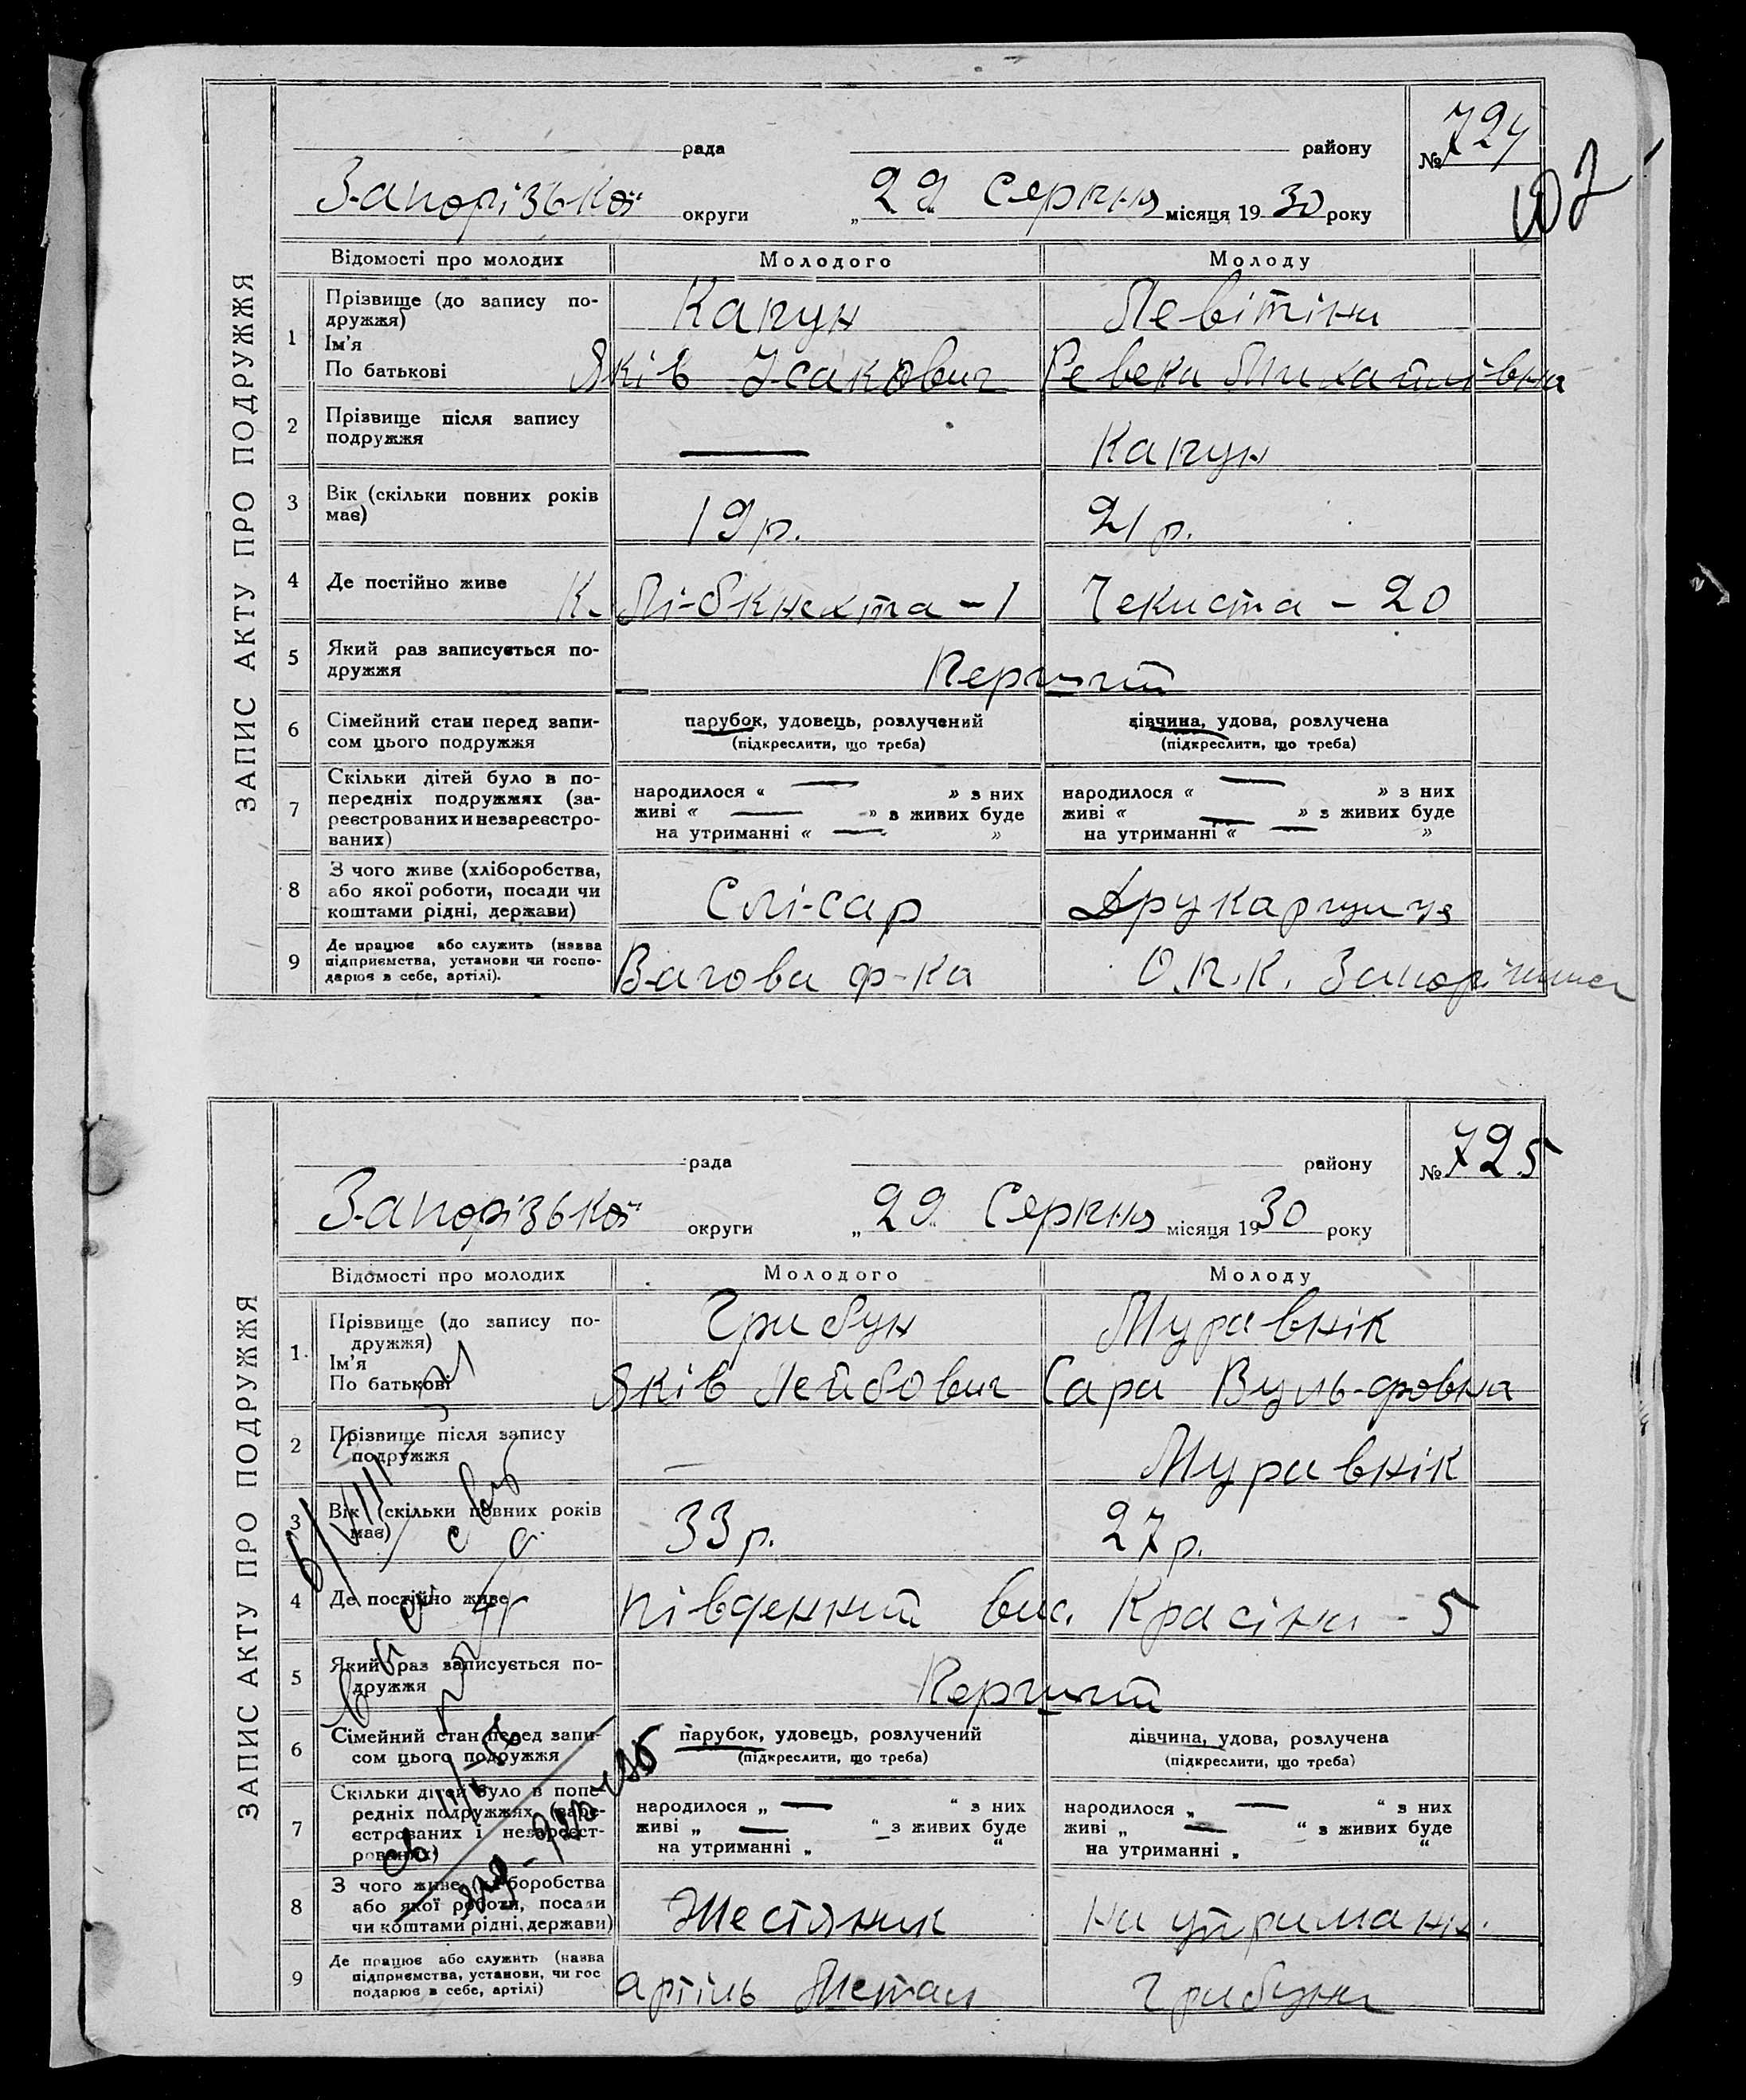 ЗАПИС АКТУ ПРО ПОДРУЖЖЯ
рада району № 724
107
Запорізької округи „ 29 Серпня місяця 1930 року
Відомості про молодих Молодого Молоду
1 Прізвище (до запису по- Капун Левітіна
дружжя)
Ім'я
По батькові Яків Ісакович Ревека Михайлівна
2 Прізвище після запису
подружжя — Капун
3 Вік (скільки повних років
має) 19 р. 21 р.
4 Де постійно живе К. Лі-бкнехта - 1 Чекиста - 20
5 Який раз записується по-
дружжя Перший
6 Сімейний стан перед запи- парубок, удовець, розлучений дівчина, удова, розлучена
сом цього подружжя (підкреслити, що треба) (підкреслити, що треба)
7 Скільки дітей було в по-
передніх подружжях (за- народилося « — » з них народилося « — » з них
реєстрованих и незареєстро- живі « — » з живих буде живі « — » з живих буде
ваних) на утриманні « — » на утриманні « — »
8 З чого живе (хліборобства,
або якої роботи, посади чи Слі-сар Друкарщиця
коштами рідні, держави)
9 Де працює або служить (назва
підприємства, установи чи госпо- Вагова ф-ка О.П.К.
дарює в себе, артілі).
ЗАПИС АКТУ ПРО ПОДРУЖЖЯ
рада району № 725
Запорізької округи „ 29 Серпня місяця 1930 року
Відомості про молодих Молодого Молоду
1 Прізвище (до запису по- Грибун Муравнік
дружжя)
Ім'я
По батькові Яків Лейбович Сара Вуль-фовна
2 Прізвище після запису
подружжя — Муравнік
3 Вік (скільки повних років
має) 33 р. 27 р.
4 Де постійно живе південний вис. Красіна - 5
5 Який раз записується по-
дружжя Перший
6 Сімейний стан перед запи- парубок, удовець, розлучений дівчина, удова, розлучена
сом цього подружжя (підкреслити, що треба) (підкреслити, що треба)
7 Скільки дітей було в попе-
редніх подружжях (заре- народилося „ — “ з них народилося „ — “ з них
єстрованих і незареєст- живі „ — “ з живих буде живі „ — “ з живих буде
рованих) на утриманні „ “ на утриманні „ “
8 З чого живе (хліборобства
або якої роботи, посади Жестяник на утриманн.
чи коштами рідні, держави)
9 Де працює або служить (назва
підприємства, установи, чи гос артіль Метал Грибуна
подарює в себе, артілі)